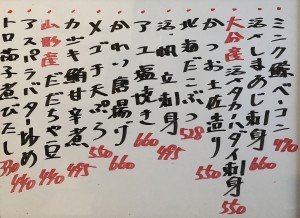 ミンク鯨ベーコン
活しまあじ刺身 550
大分産 活タカノハダイ刺身 550
かつお土佐造り 550
北海だこぶつ 528
活帆立刺身 495
アユ塩焼き 660
かれい唐揚げ 660
メゴチ天ぷら 550
カジキ鮪甘辛煮 495
山形産 だだちゃ豆 440
アスパラバター炒め 440
トロ茄子煮びたし